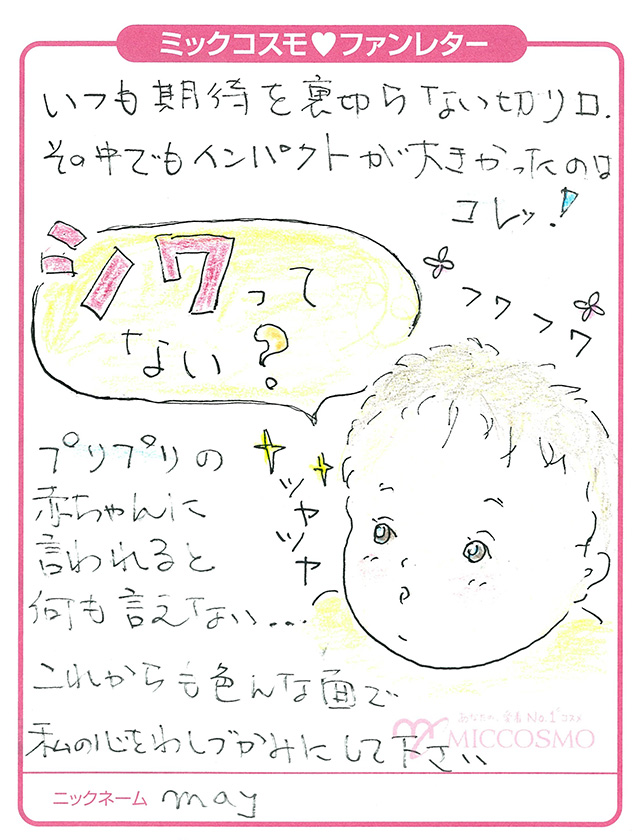 ミックコスモ♥ファンレター
いつも期待を裏切らない切り口.
その中でもインパクトが大きかったのは
コレッ!
シワって
ない?
フワフワ
プリプリの
赤ちゃんに
言われると
何も言えない...
ツヤツヤ
これからも色んな面で
私の心をわしづかみにして下さい
あなたの、愛着No.1コスメ
MICCOSMO
ニックネーム may